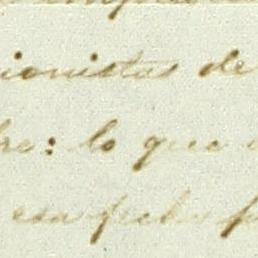 ionistas de
re: lo que
esa fecha